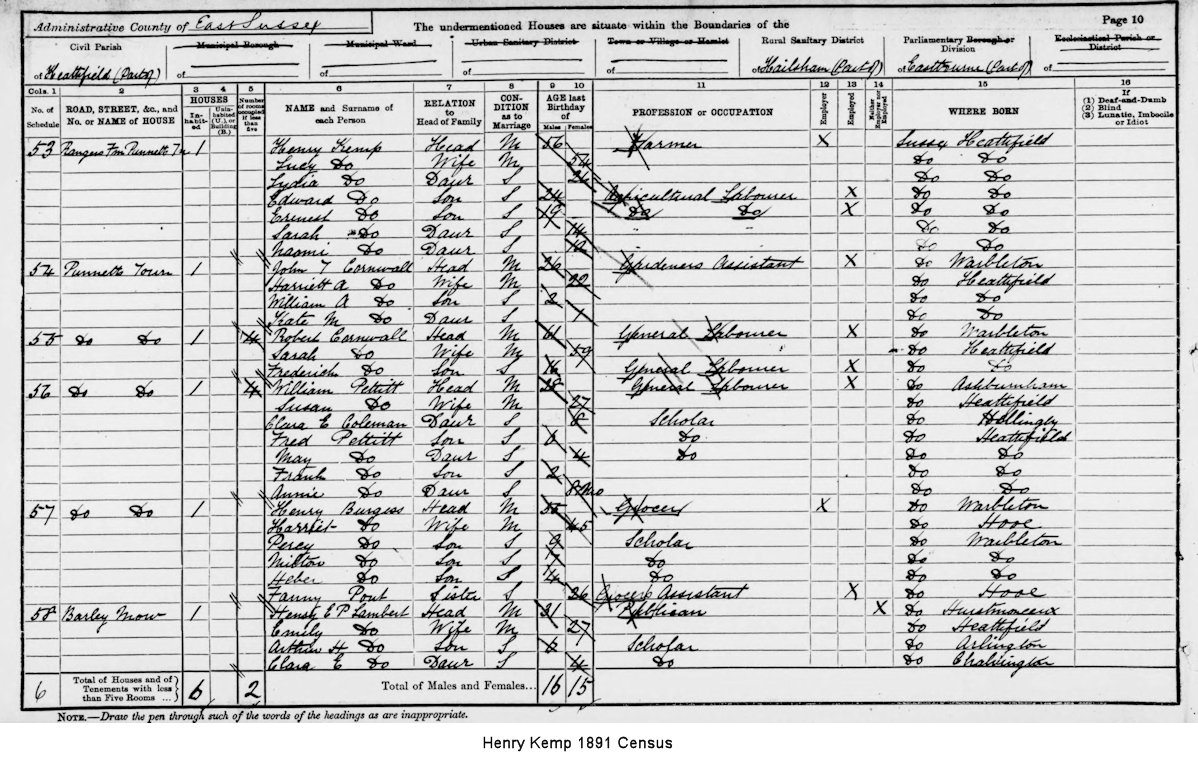 Administrative County of East Sussex
The undermentioned Houses are situate within the Boundaries of the
Page 10
Civil Parish Municipal Borough Municipal Ward Urban Sanitary District Town or Village or Hamlet Rural Sanitary District Parliamentary Borough or Division Ecclesiastical Parish or District
of Heathfield (Part of) of of of of of Hailsham (Part of) of Eastbourne (Part of) of
Cols. 1 2 3 4 5 6 7 8 9 10 11 12 13 14 15 16
No. of Schedule ROAD, STREET, &c., and No. or NAME of HOUSE HOUSES Inhabited Uninhabited (U.), or Building (B.) Number of rooms occupied if less than five NAME and Surname of each Person RELATION to Head of Family CONDITION as to Marriage AGE last Birthday of Males Females PROFESSION or OCCUPATION Employer Employed Neither Employer nor Employed WHERE BORN If (1) Deaf-and-Dumb (2) Blind (3) Lunatic, Imbecile or Idiot
53 Rangers Fm Punnetts Tn 1 Henry Kemp Head M 56 Farmer X Sussex Heathfield
Lucy Do Wife M 54 Do Do
Lydia Do Daur S 26 Do Do
Edward Do Son S 24 Agricultural Labourer X Do Do
Ernest Do Son S 19 Do Do X Do Do
Sarah Do Daur S 14 " " Do Do
Naomi Do Daur S 12 Do Do
54 Punnetts Town 1 John T Cornwall Head M 26 Gardeners Assistant X Do Warbleton
Harriett A Do Wife M 22 Do Heathfield
William A Do Son S 2 Do Do
Kate M Do Daur S 1 Do Do
55 Do Do 1 4 Robert Cornwall Head M 61 General Labourer X Do Warbleton
Sarah Do Wife M 59 Do Heathfield
Frederick Do Son S 16 General Labourer X Do Do
56 Do Do 1 4 William Pettitt Head M 28 General Labourer X Do Ashburnham
Susan Do Wife M 27 Do Heathfield
Clara E Coleman Daur S 8 Scholar Do Hellingly
Fred Pettitt Son S 6 Do Do Heathfield
May Do Daur S 4 Do Do Do
Frank Do Son S 2 Do Do
Annie Do Daur S 8 Mo Do Do
57 Do Do 1 Henry Burgess Head M Grocer X Do Warbleton
Harriet Do Wife M 45 Do Hooe
Percy Do Son S 9 Scholar Do Warbleton
Milton Do Son S 7 Do Do Do
Heber Do Son S 4 Do Do Do
Fanny Pout Sister S 26 Grocers Assistant X Do Hooe
58 Barley Mow 1 Henry E P Lambert Head M 31 Publican X Do Hurstmonceux
Emily Do Wife M 27 Do Heathfield
Arthur H Do Son S 6 Scholar Do Arlington
Clara E Do Daur S 4 Do Do Chalvington
6 Total of Houses and of Tenements with less than Five Rooms ... 6 2 Total of Males and Females... 16 15
NOTE.—Draw the pen through such of the words of the headings as are inappropriate.
Henry Kemp 1891 Census